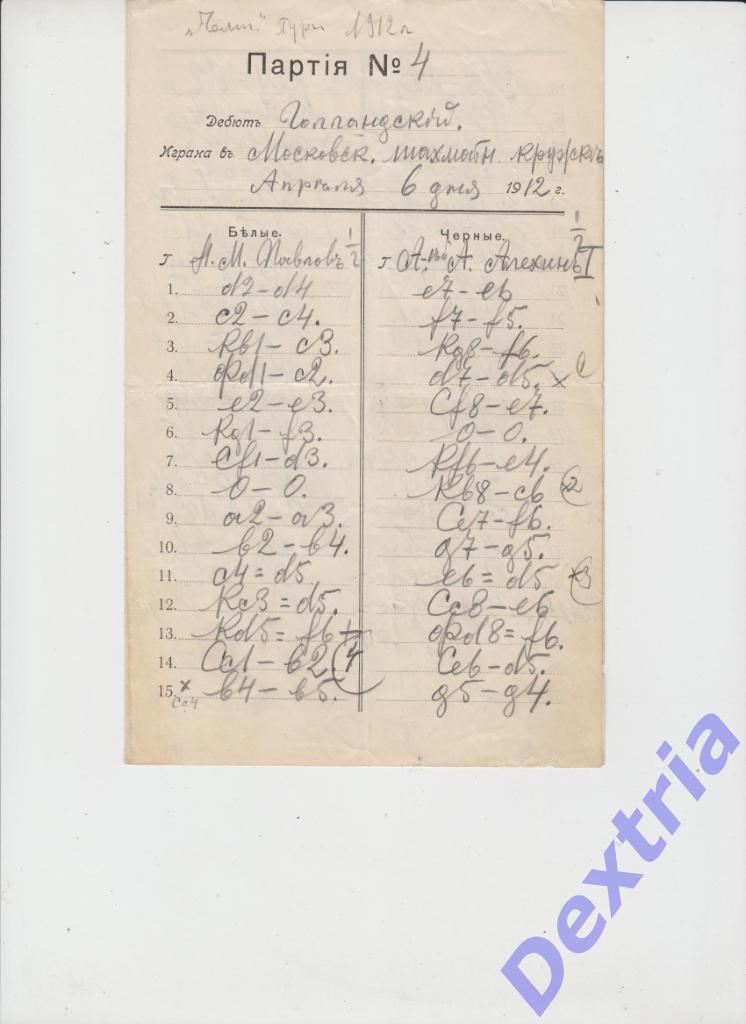 "Чемп." Турн 1912 г
Партія № 4
Дебютъ Голландскій.
Играна въ Московск. шахматн. кружкѣ
Апрѣля 6 дня 1912 г.
Бѣлые. Черные.
г П. М. Павловъ 1/2 г А. А. Алехинъ I 1/2
1. d2–d4 e7–e6
2. c2–c4. f7–f5.
3. Кb1–c3. Кg8–f6.
4. Фd1–c2. d7–d5. × 1
5. e2–e3. Сf8–e7.
6. Кg1–f3. 0–0.
7. Сf1–d3. Кf6–e4.
8. 0–0. Кb8–c6 ×2
9. a2–a3. Сe7–f6.
10. b2–b4. g7–g5.
11. c4=d5. e6=d5 ×3
12. Кc3=d5. Сc8–e6
13. Кd5=f6+ Фd8=f6.
14. Сc1–b2. (4 Сe6–d5.
15. × b4–b5. g5–g4.
Сc4
Dextria